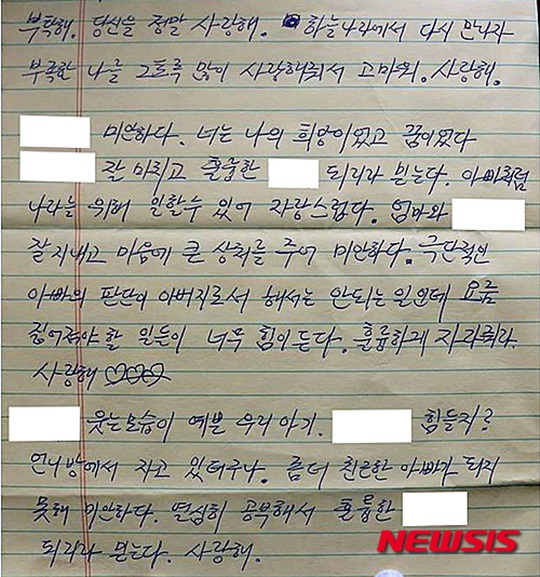 부탁해. 당신을 정말 사랑해. 하늘나라에서 다시 만나자
부족한 나를 그토록 많이 사랑해줘서 고마워. 사랑해.
미안하다. 너는 나의 희망이었고 꿈이었다
잘 마치고 훌륭한 되리라 믿는다. 아빠처럼
나라를 위해 일할수 있어 자랑스럽다. 엄마와
잘 지내고 마음에 큰 상처를 주어 미안하다. 극단적인
아빠의 판단이 아버지로서 해서는 안되는 일인데 요즘
짊어져야 할 일들이 너무 힘이 든다. 훌륭하게 자라줘라.
사랑해 ♡♡♡
웃는모습이 예쁜 우리아기. 힘들지?
언니방에서 자고 있더구나. 좀더 친근한 아빠가 되지
못해 미안하다. 열심히 공부해서 훌륭한
되리라 믿는다. 사랑해.
NEWSIS